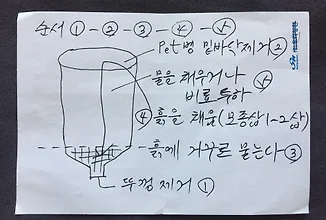 순서 ① - ② - ③ - ④ - ⑤
Pet병 밑바닥제거 ②
물을 채우거나 ⑤
비료 투하
④ 흙을 채움(모종삽1-2삽)
흙에 거꾸로 묻는다 ③
뚜껑 제거 ①